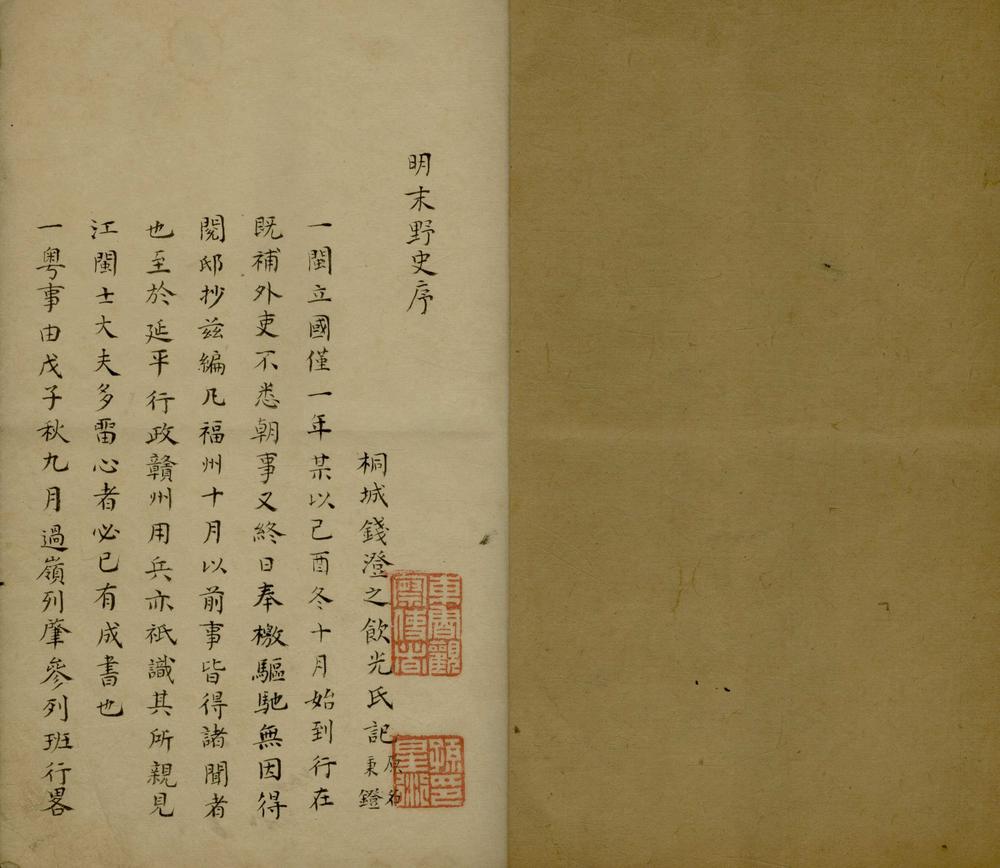 明末野史序
桐城錢澄之飲光氏記
原名
秉鐙
一閩立國僅一年某以己酉冬十月始到行在
既補外吏不悉朝事又終日奉檄驅馳無因得
閱邸抄茲編凡福州十月以前事皆得諸聞者
也至於延平行政贛州用兵亦祇識其所親見
江閩士大夫多雷心者必已有成書也
一粵事由戊子秋九月過嶺列肇參列班行畧
東魯觀
察使者
孫印
星衍